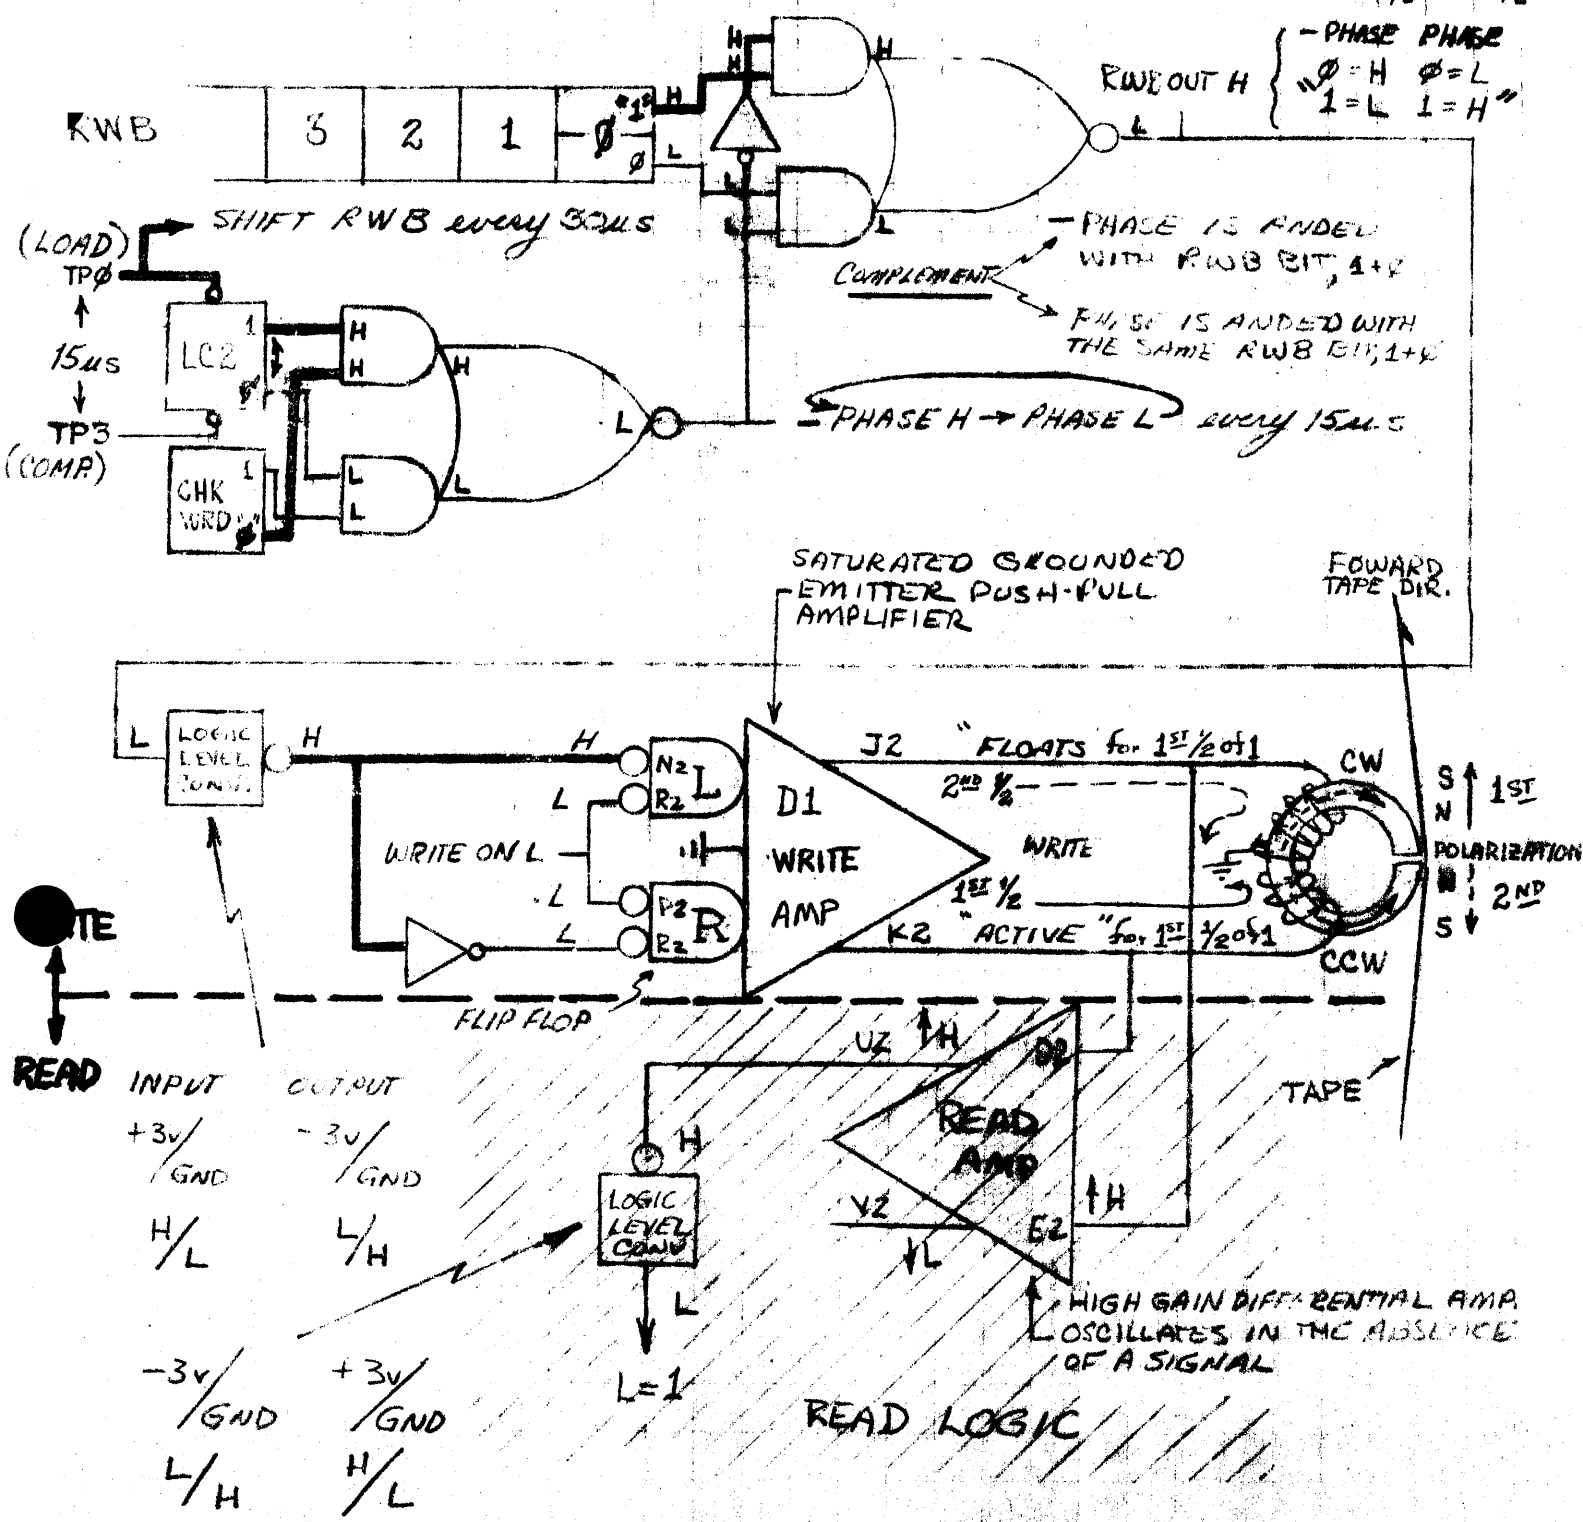 RWB OUT H
- PHASE PHASE
"Ø = H Ø = L
1 = L 1 = H"
RWB
3 2 1 Ø
"1" H
Ø L
H
H
H
L
L
L
L
SHIFT RWB every 30µs
(LOAD)
TPØ
15µs
TP3
(COMP.)
LC2
1
Ø
CHK
WRD
1
Ø
H
H
H
L
L
L
L
COMPLEMENT
- PHASE IS ANDED
WITH RWB BIT, 1+Ø
PHASE IS ANDED WITH
THE SAME RWB BIT, 1+Ø
- PHASE H → PHASE L every 15µs
SATURATED GROUNDED
EMITTER PUSH-PULL
AMPLIFIER
FOWARD
TAPE DIR.
L
LOGIC
LEVEL
CONV.
H
H
N2
R2
L
L
WRITE ON L
L
L
P2
R2
R
FLIP FLOP
D1
WRITE
AMP
J2 "FLOATS for 1ST 1/2 of 1
2ND 1/2
WRITE
1ST 1/2
K2 "ACTIVE" for 1ST 1/2 of 1
CW
CCW
S
N
1ST
POLARIZATION
2ND
S
TAPE
READ
INPUT OUTPUT
+3v/GND -3v/GND
H/L L/H
-3v/GND +3v/GND
L/H H/L
U2 H
D2
READ
AMP
E2
H
V2
L
H
LOGIC
LEVEL
CONV
L
L=1
HIGH GAIN DIFFERENTIAL AMP.
OSCILLATES IN THE ABSENCE
OF A SIGNAL
READ LOGIC